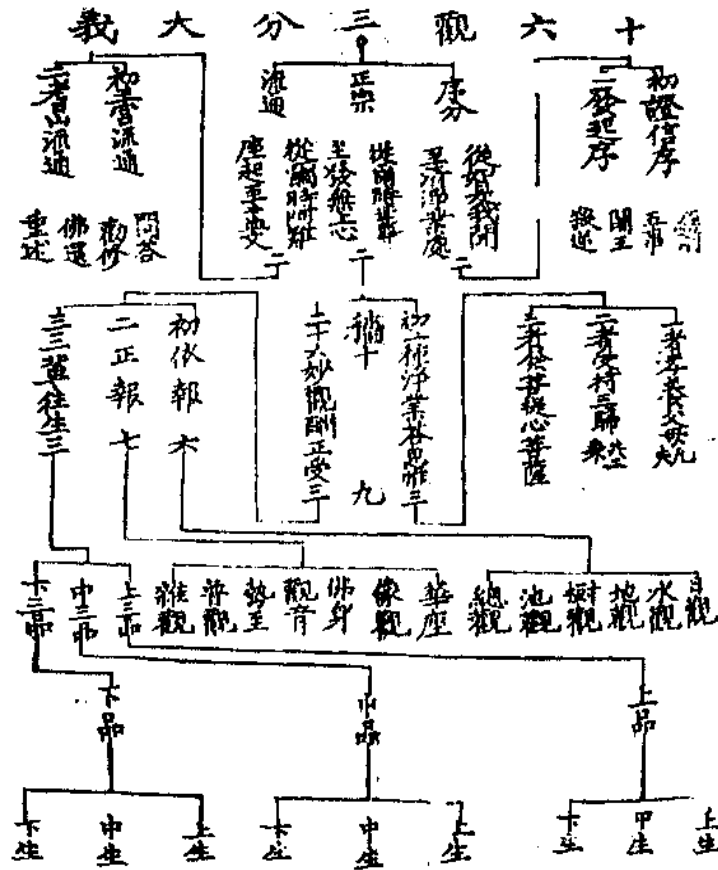 十六觀三分大義
初證信序
二發起序
序分
正宗
流通
初王宮流通
二耆山流通
殺逆
闍王
從如是我聞
至清淨業處
從爾時韋
至發無上心
從爾時阿難
座起
問答
勸修
佛還
重述
二
二
二
一者孝養父母
二者受持三歸
三者發菩提心菩薩
初三種淨業
三
九
十六妙觀
正受三
初依報六
二正報七
三三輩往生三
日觀
水觀
地觀
樹觀
池觀
總觀
華座
像觀
佛身
觀音
勢至
普觀
雜觀
上三品
中三品
下三品
上品
中品
下品
上生
中生
下生
上生
中生
下生
上生
中生
下生